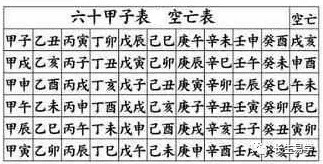 六十甲子表 空亡表 空亡
甲子 乙丑 丙寅 丁卯 戊辰 己巳 庚午 辛未 壬申 癸酉 戌亥
甲戌 乙亥 丙子 丁丑 戊寅 己卯 庚辰 辛巳 壬午 癸未 申酉
甲申 乙酉 丙戌 丁亥 戊子 己丑 庚寅 辛卯 壬辰 癸巳 午未
甲午 乙未 丙申 丁酉 戊戌 己亥 庚子 辛丑 壬寅 癸卯 辰巳
甲辰 乙巳 丙午 丁未 戊申 己酉 庚戌 辛亥 壬子 癸丑 寅卯
甲寅 乙卯 丙辰 丁巳 戊午 己未 庚申 辛酉 壬戌 癸亥 子丑